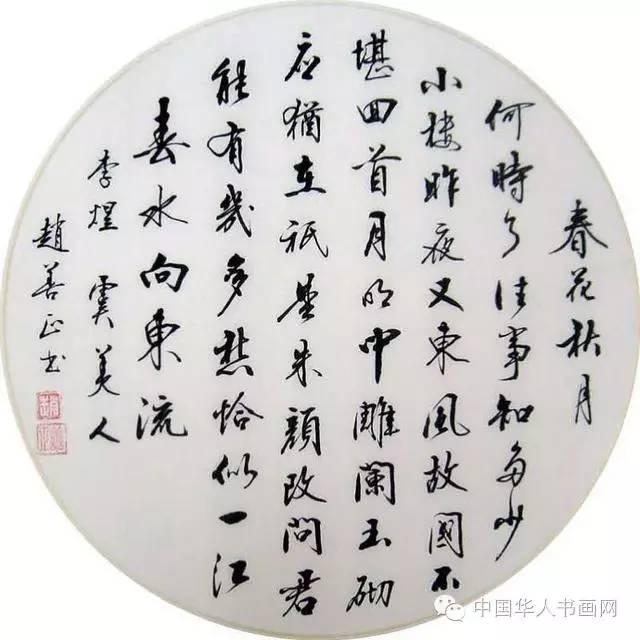 春花秋月
何時了往事知多少
小楼昨夜又東風故國不
堪回首月明中雕闌玉砌
应猶在祇是朱顔改問君
能有幾多愁恰似一江
春水向東流
李煜 虞美人
趙善正书
中国华人书画网